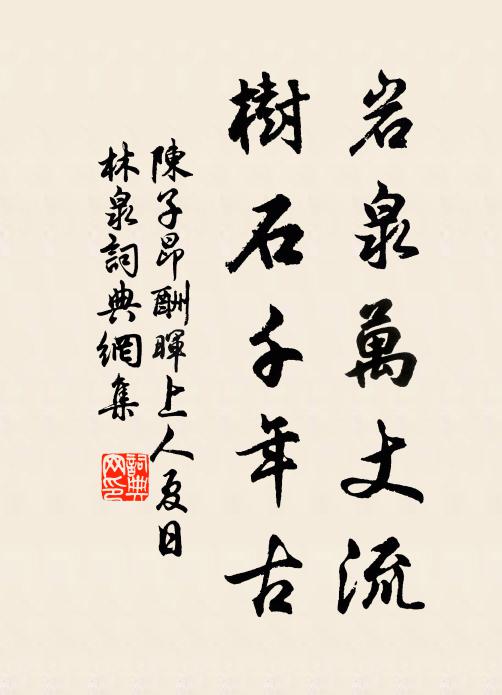 岩泉萬丈流
樹石千年古
陳子昂酬暉上人夏日
林泉詞典網集
詞典网印